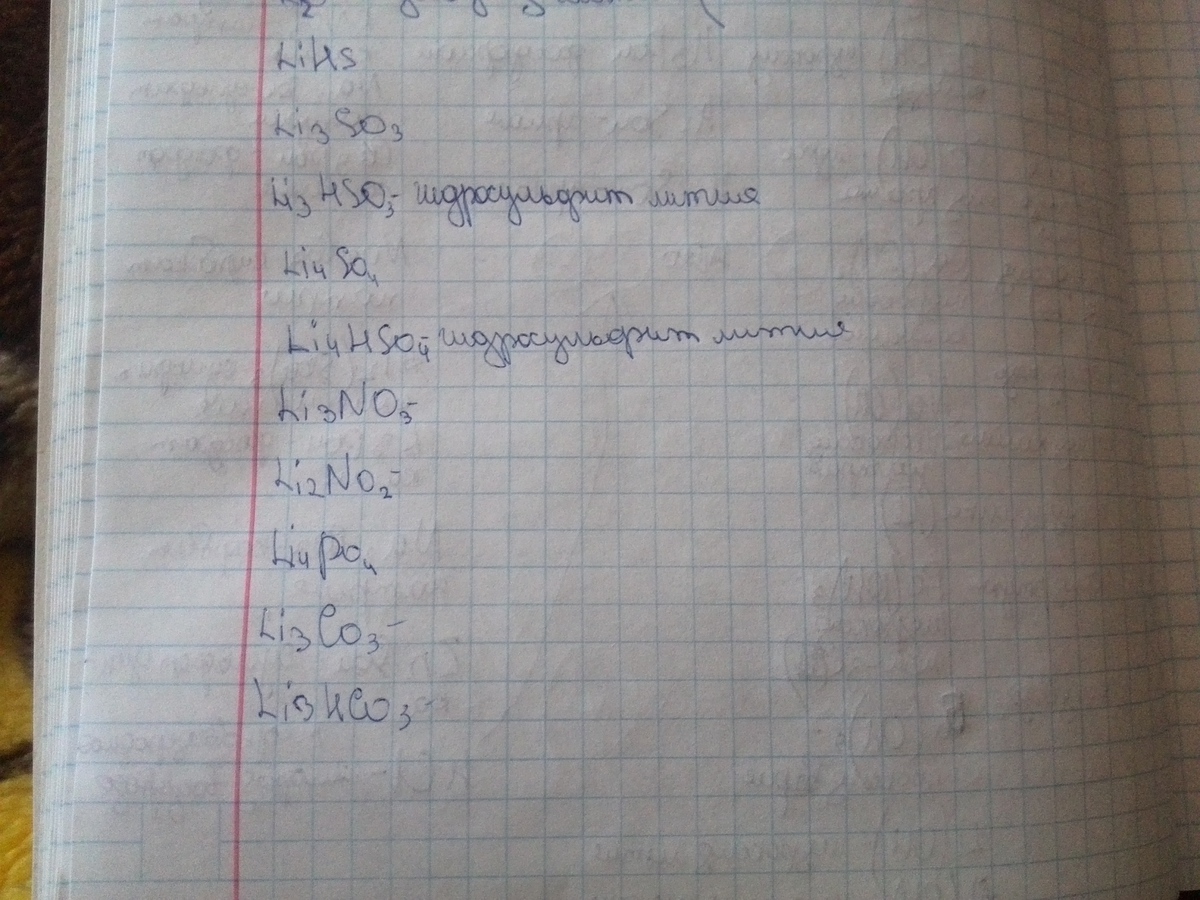 LiHS
Li₃SO₃
Li₃HSO₃- гидросульфит лития
Li₄SO₄
Li₄HSO₄- гидросульфит лития
Li₃NO₃-
Li₂NO₂-
Li₄PO₄
Li₃CO₃-
Li₃HCO₃-